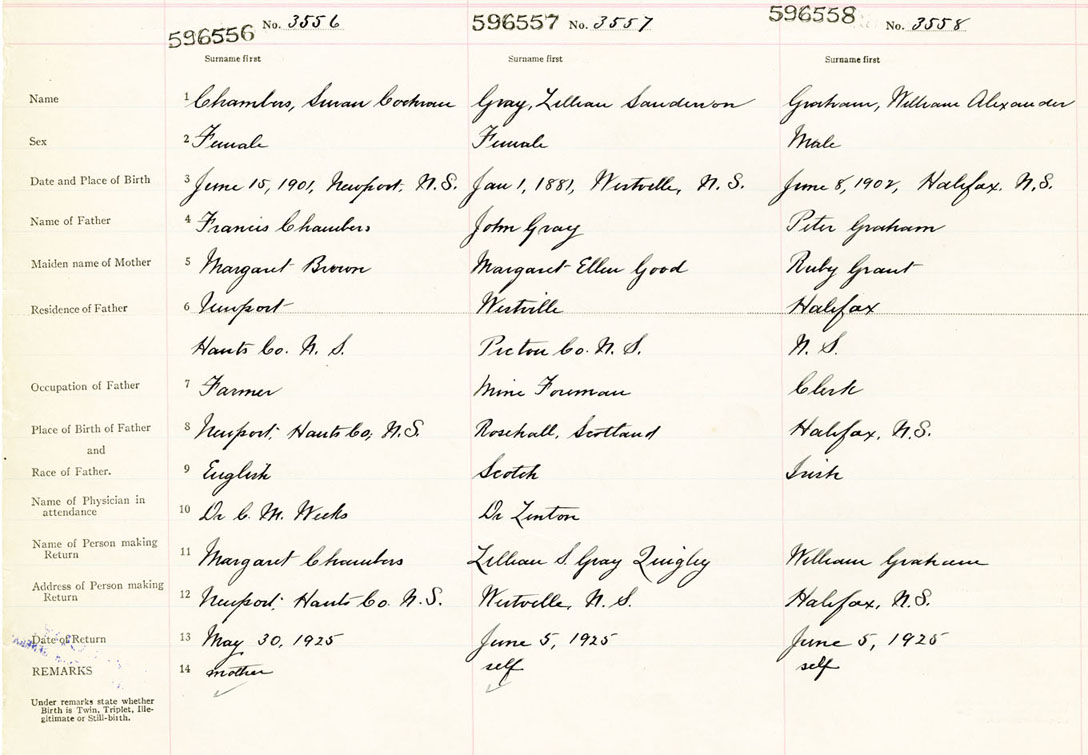 596556 No. 3556 596557 No. 3557 596558 No. 3558
Surname first Surname first Surname first
Name 1 Chambers, Susan Cochran Gray, Lillian Sanderson Graham, William Alexander
Sex 2 Female Female Male
Date and Place of Birth 3 June 15, 1901, Newport, N.S. Jan 1, 1881, Westville, N.S. June 8, 1902, Halifax, N.S.
Name of Father 4 Francis Chambers John Gray Peter Graham
Maiden name of Mother 5 Margaret Brown Margaret Ellen Good Ruby Grant
Residence of Father 6 Newport Westville Halifax
Hants Co. N. S. Pictou Co. N. S. N. S.
Occupation of Father 7 Farmer Mine Foreman Clerk
Place of Birth of Father 8 Newport, Hants Co, N.S. Rosehall, Scotland Halifax, N.S.
and
Race of Father. 9 English Scotch Irish
Name of Physician in
attendance 10 Dr C. M. Weeks Dr
Name of Person making
Return 11 Margaret Chambers Lillian S. Gray Quigley William Graham
Address of Person making
Return 12 Newport, Hants Co. N.S. Westville, N. S. Halifax, N.S.
Date of Return 13 May 30, 1925 June 5, 1925 June 5, 1925
REMARKS 14 mother self self
Under remarks state whether
Birth is Twin, Triplet, Ille-
gitimate or Still-birth.